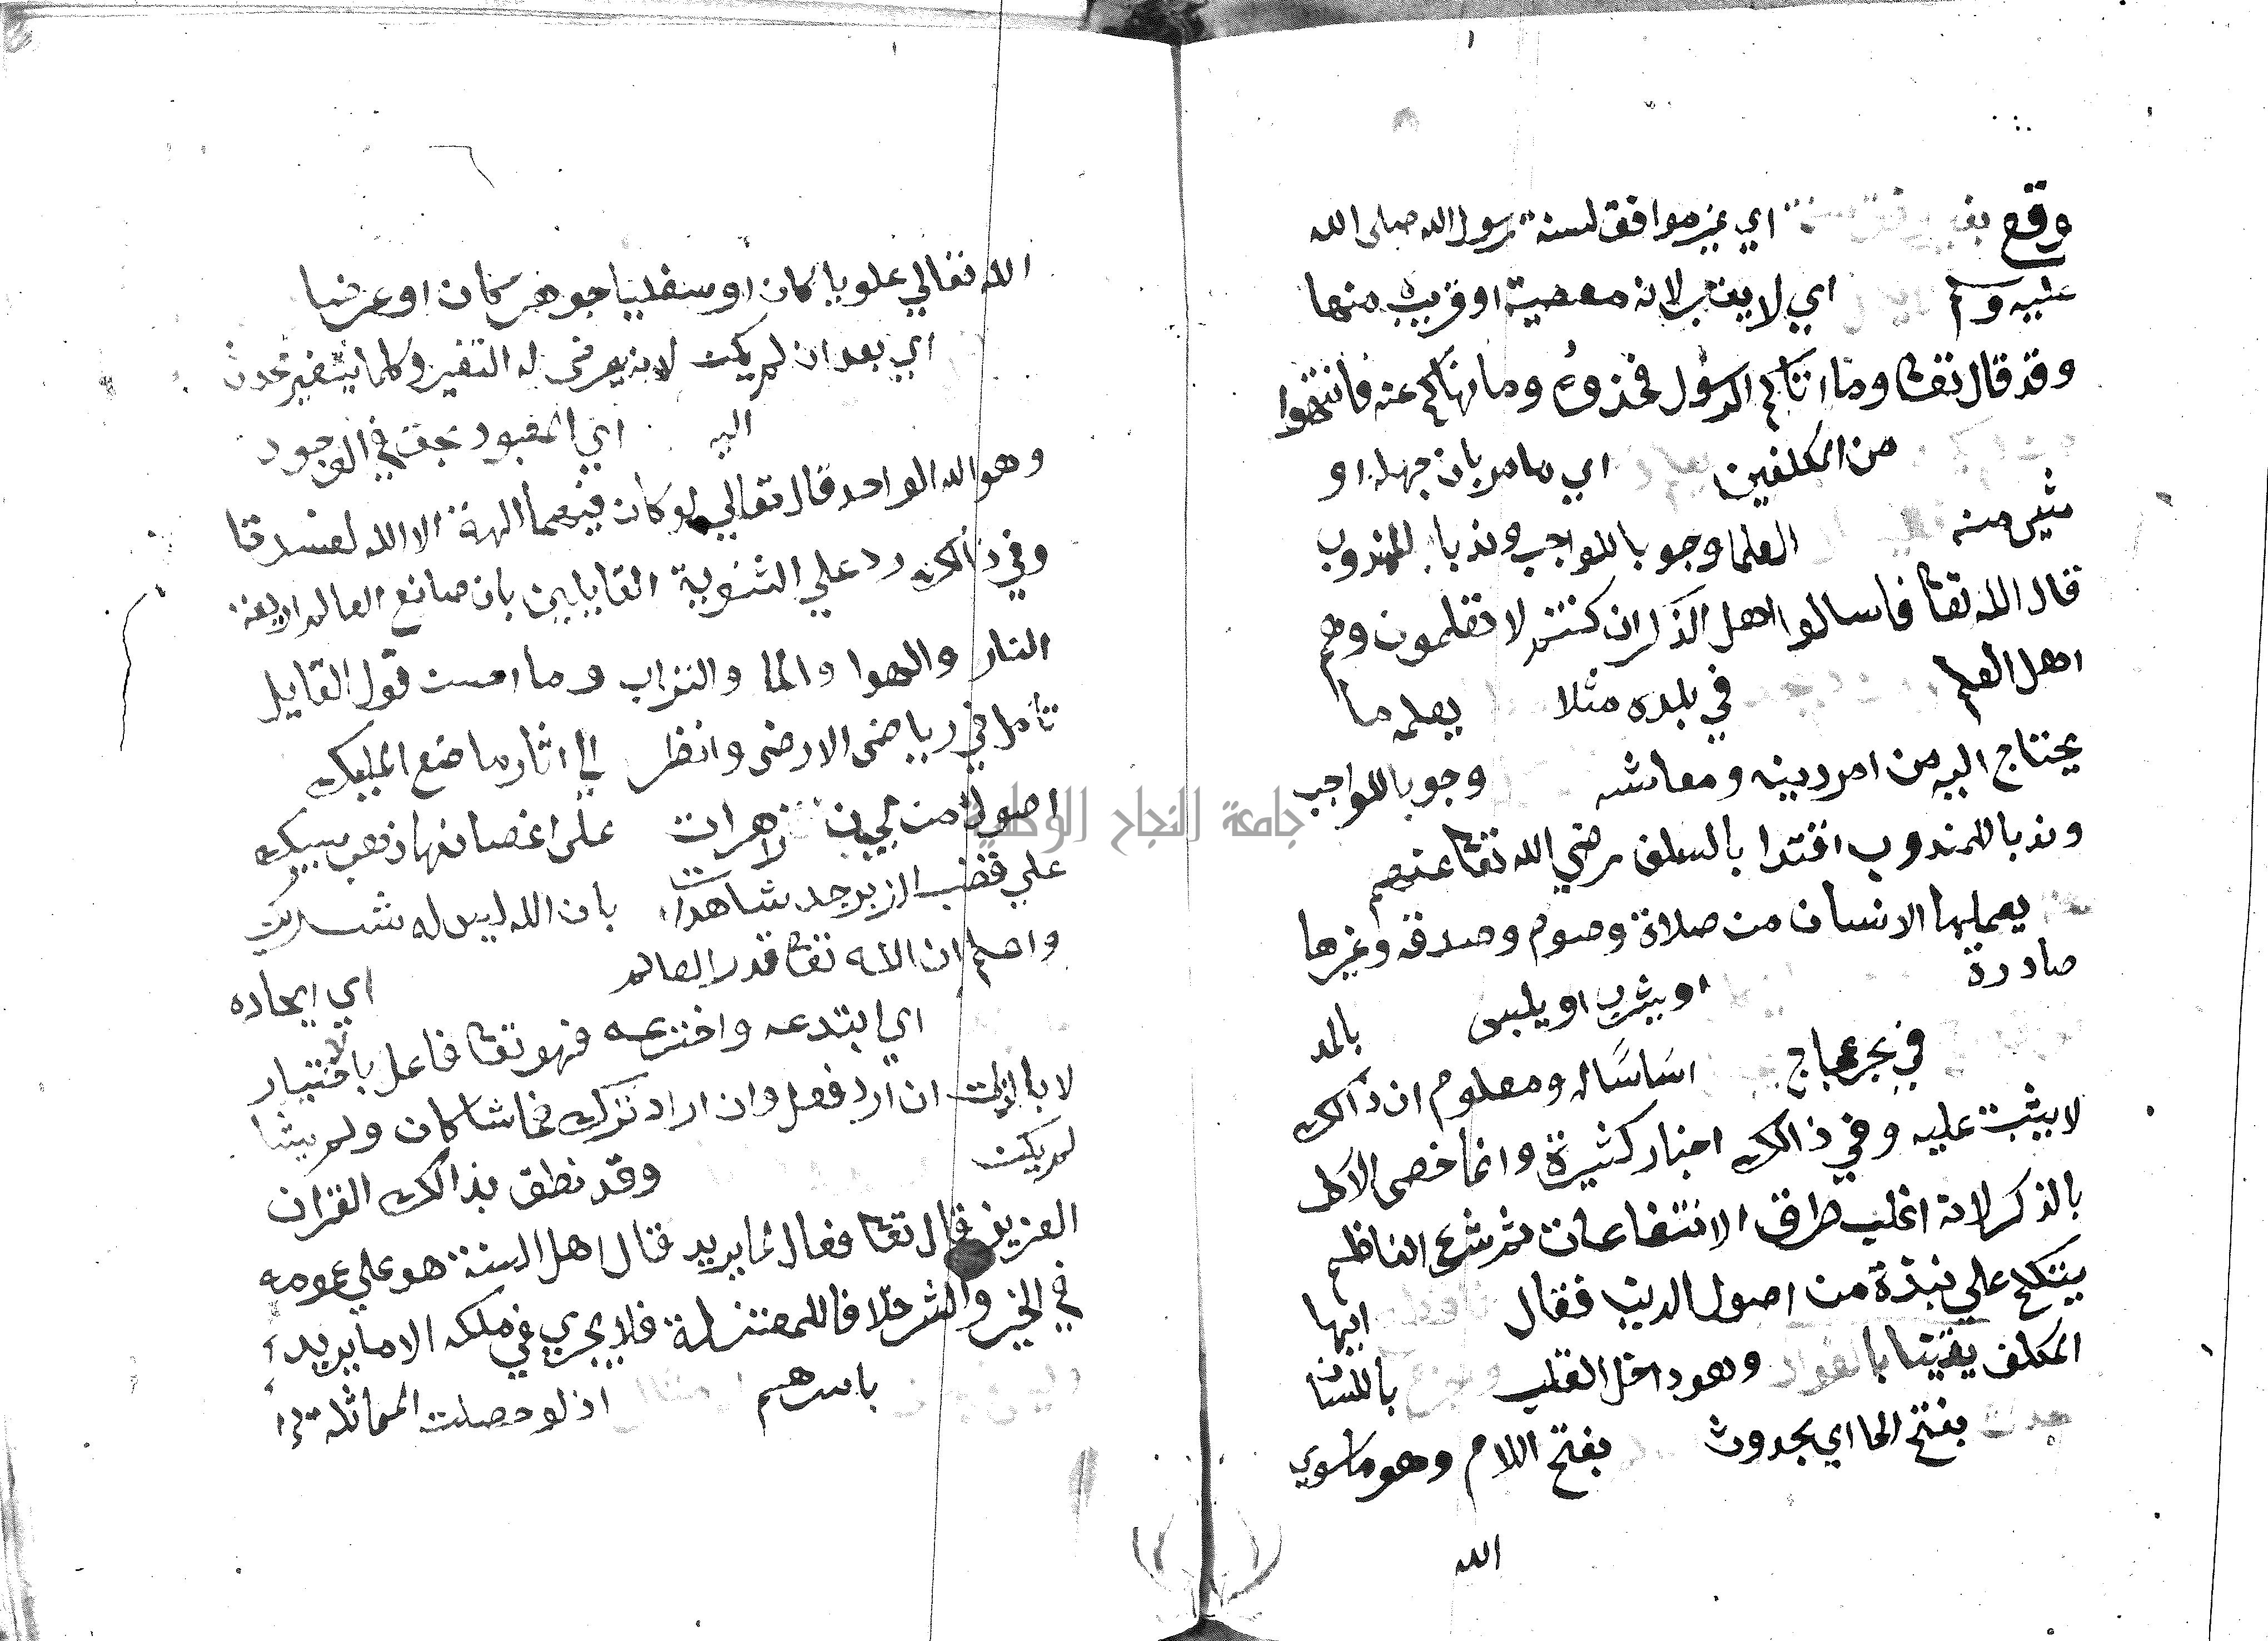 وقع اي غير موافق لسنة رسول الله صلى الله
عليه وسلم اي لا يقبل لانه معصية او قريب منها
وقد قال تعا وما اتاكم الرسول فخذوه وما نهاكم عنه فانتهوا
من المكلفين اي ما مر بان جهله او
شي منه العلما وجوبا للواجب وندبا للمندوب
قال الله تعا فاسالوا اهل الذكر ان كنتم لا تعلمون وهم
اهل العلم في بلده مثلا يعلمه ما
يحتاج اليه من امر دينه ومعاشه وجوبا للواجب
وندبا للمندوب اقتدا بالسلف رضي الله تعا عنهم
يعملها الانسان من صلاة وصوم وصدقه وغيرها
صادرة او يشرب او يلبس بالمد
في بحر عجاج اساسا له ومعلوم ان ذالك
لا يثبت عليه وفي ذالك اخبار كثيرة وانما خص الاكل
بالذكر لانه اغلب طرق الانتفاعات ثم شرع الناظم
يتكلم علي نبذة من اصول الدين فقال ايها
المكلف يقينا بالفواد وهو داخل القلب باللسان
بفتح الحا اي بحدوث بفتح اللام وهو ما سوي
الله
الله تعالي علويا كان او سفليا جوهر كان او عرضا
اي بعد ان لم يكن لانه يعرض له التغير وكلما يتغير محدث
اليه اي المعبود بحق في الوجود
وهو الله الواحد قال تعالي لو كان فيهما الهة الا الله لفسدتا
وفي ذالك رد علي الثنوية القايلين بان صانع العالم اربعة
النار والهوا والما والتراب وما احسن قول القايل
تامل في رياض الارض وانظر الي اثار ما صنع المليك
اصول من لجين زاهرات على اغصانها ذهب سبيك
علي قضب الزبرجد شاهدات بان الله ليس له شريك
واعلم ان الله تعا قدر العالم اي ايجاده
اي ابتدعه واخترعه فهو تعا فاعل بالاختيار
لا بالذات ان ارد فعل وان اراد ترك فما شا كان ولم يشا
لم يكن وقد نطق بذالك القران
العزيز قال تعا فعال لما يريد قال اهل السنة هو علي عمومه
في الخير والشر خلافا للمعتزلة فلا يجري في ملكه الا ما يريد
باسرهم اذ لو حصلت المماثلة
جامعة النجاح الوطنية